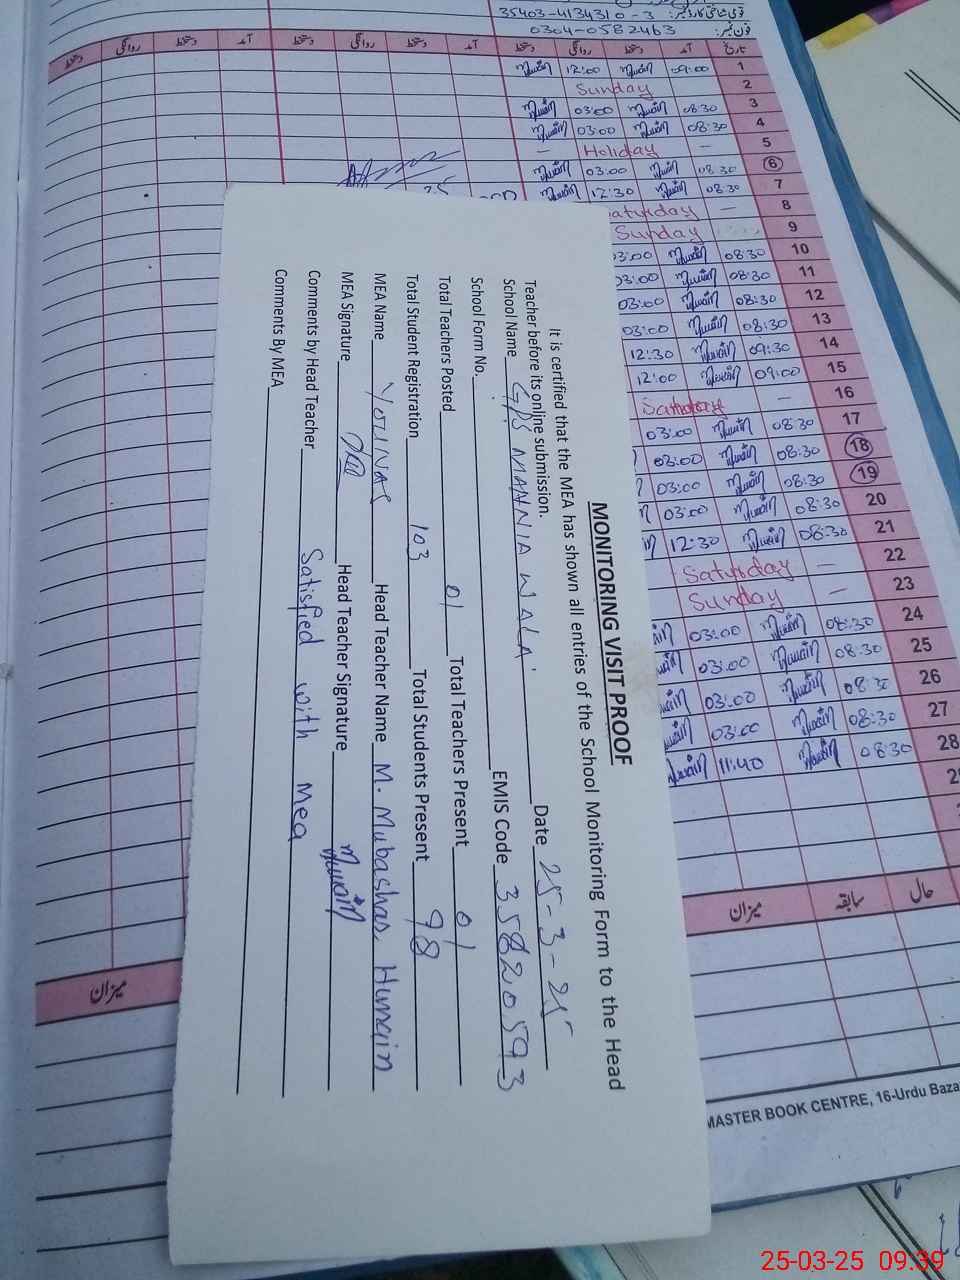 قومی شناختی کارڈ نمبر: 35403-4134310-3
فون نمبر: 0304-0582463
تاریخ آمد دستخط روانگی دستخط آمد دستخط روانگی دستخط آمد دستخط روانگی دستخط
1 09:00 12:00
2 Sunday
3 08:30 03:00
4 08:30 03:00
5 — Holiday —
6 08:30 03:00
7 08:30 12:30
8 — Saturday
9 Sunday
10 08:30 03:00
11 08:30 03:00
12 08:30 03:00
13 08:30 03:00
14 09:30 12:30
15 09:00 12:00
16 —
17 08:30 03:00
18 08:30 03:00
19 08:30 03:00
20 08:30 03:00
21 08:30 12:30
22 — Saturday
23 — Sunday
24 08:30 03:00
25 08:30 03:00
26 08:30 03:00
27 08:30 03:00
28 08:30 11:40
حال سابقہ میزان
میزان
MASTER BOOK CENTRE, 16-Urdu Baza
MONITORING VISIT PROOF
It is certified that the MEA has shown all entries of the School Monitoring Form to the Head
Teacher before its online submission. Date 25-3-25
School Name GPS MIANNIA WALA EMIS Code 35820593
School Form No.
Total Teachers Posted 01 Total Teachers Present 01
Total Student Registration 103 Total Students Present 98
MEA Name YOUNAS Head Teacher Name M. Mubashar Hunain
MEA Signature Head Teacher Signature
Comments by Head Teacher Satisfied with Mea
Comments By MEA
25-03-25 09:39